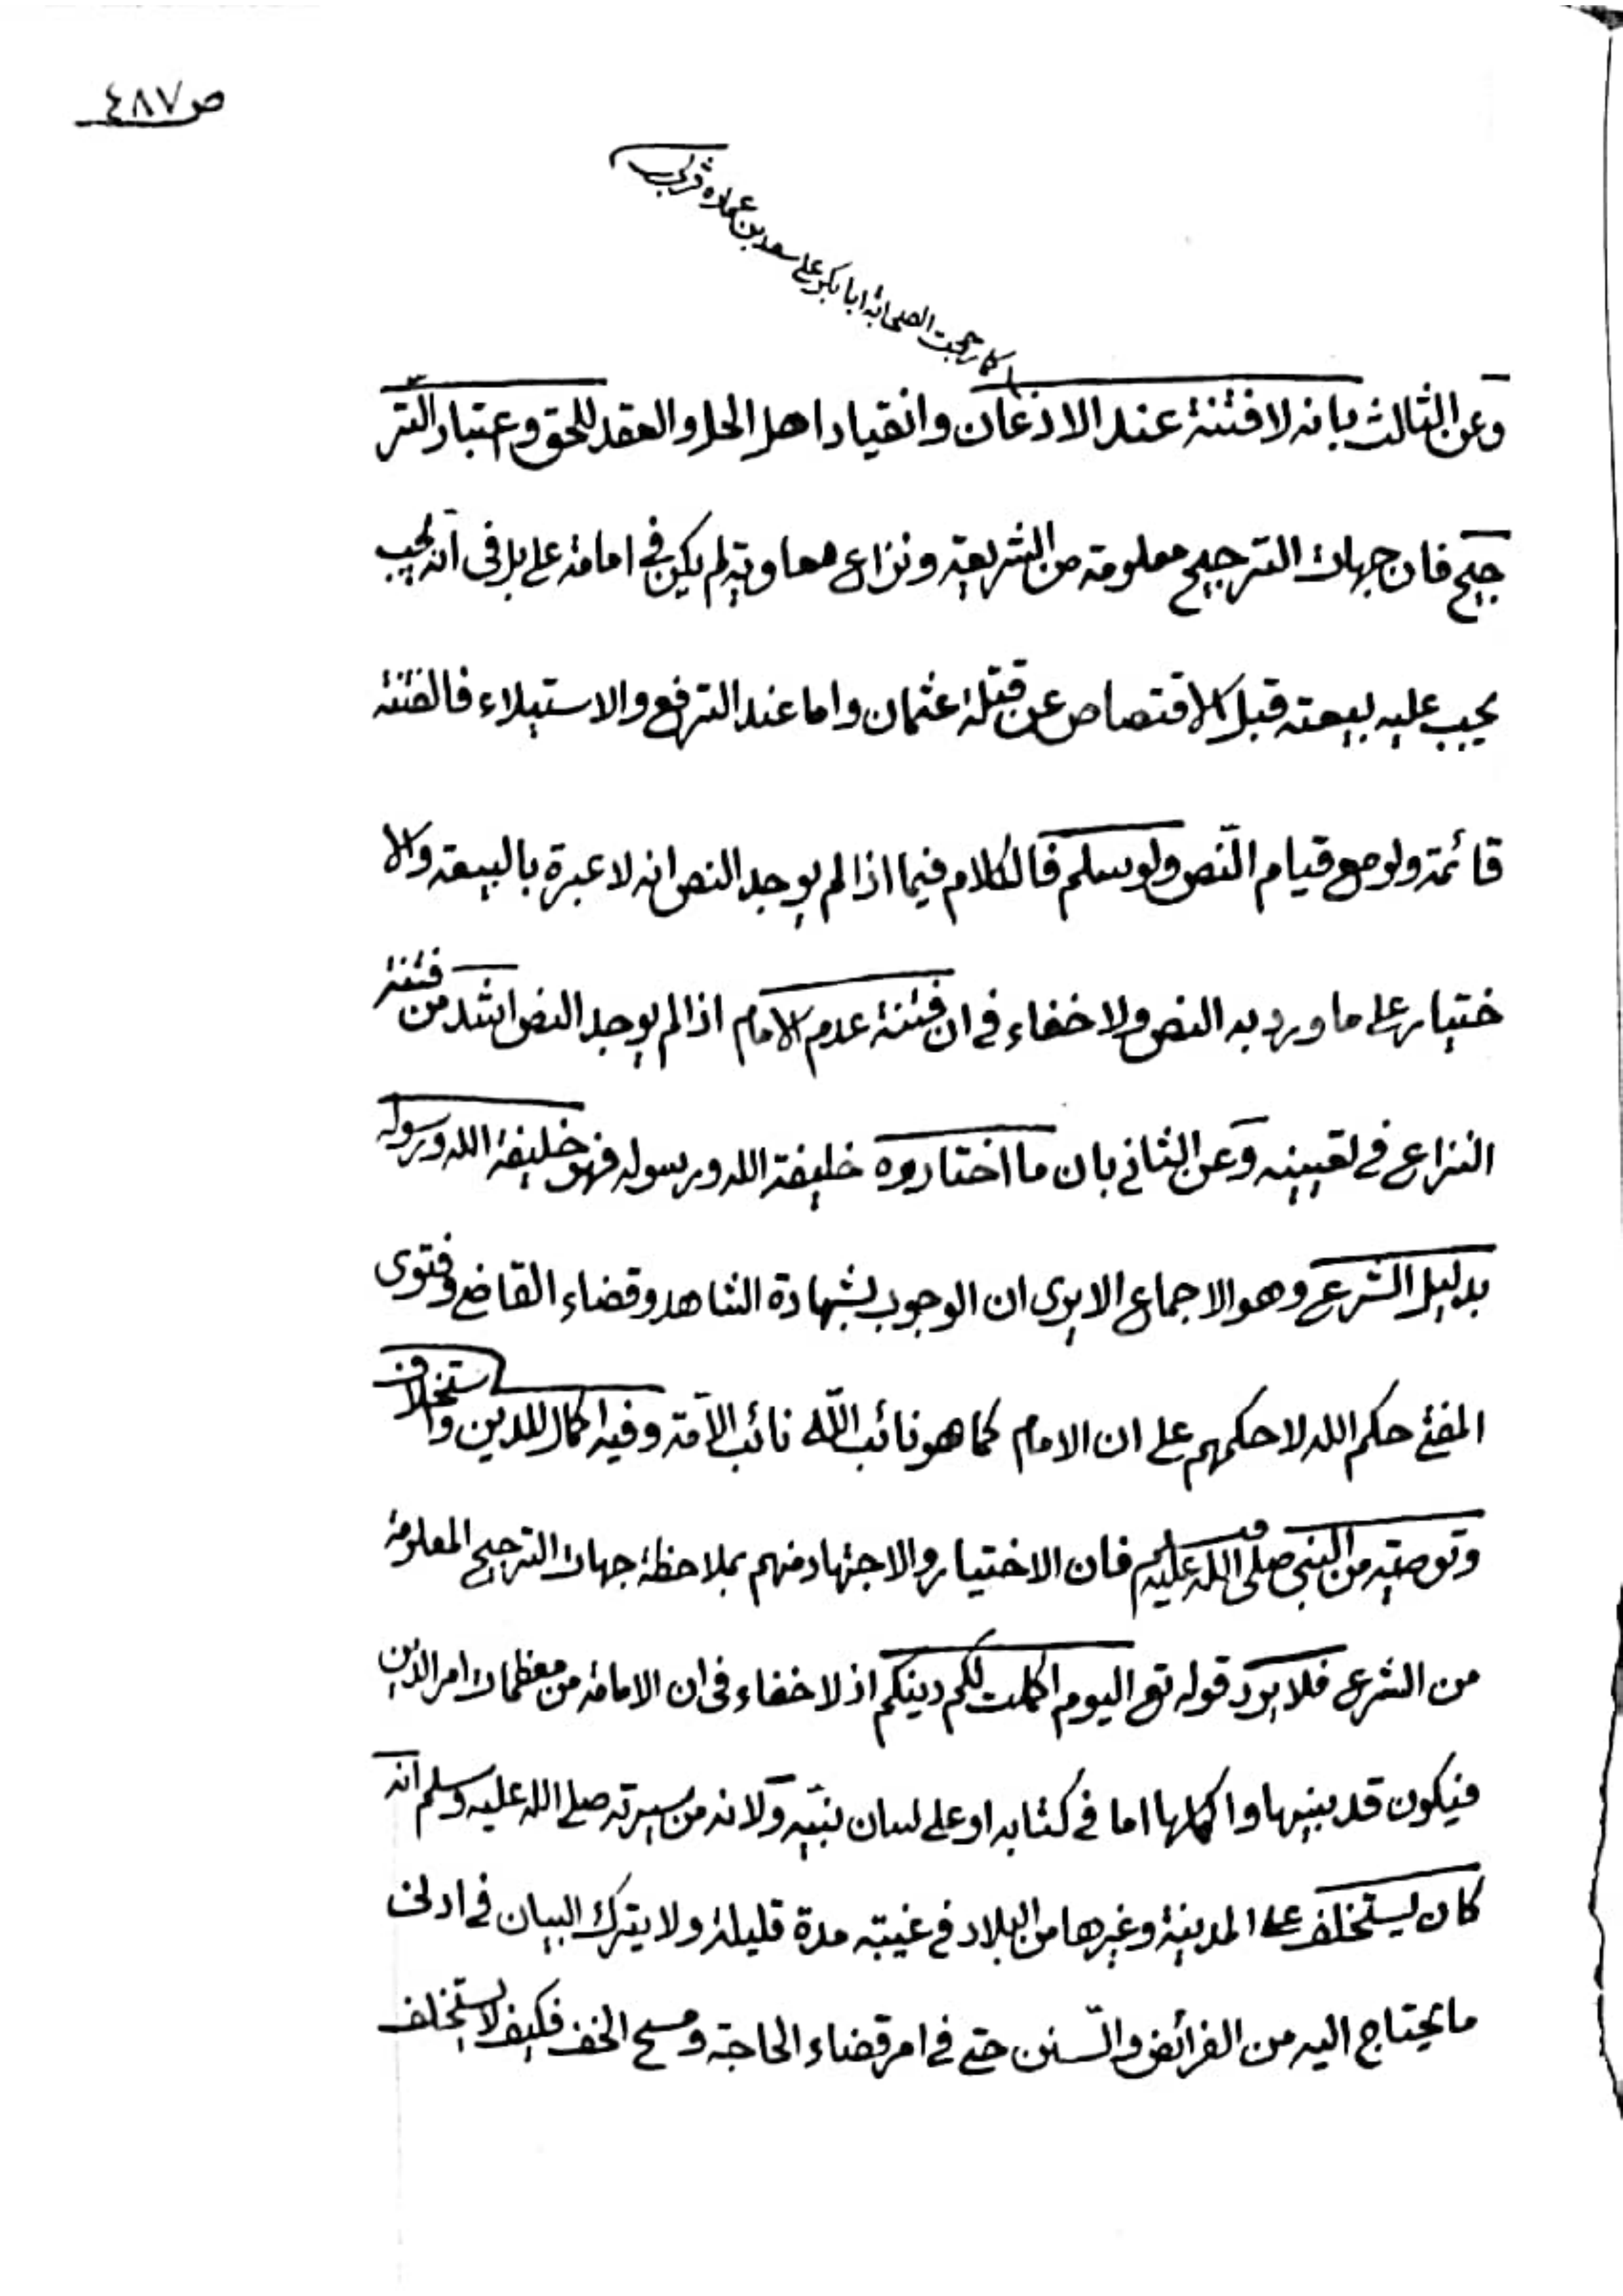 ص ٤٨٧
كما رجحت الصحابة ابا بكر على سعد بن عباده
وعن الثالث بانه لا فتنة عند الاذعان وانقياد اهل الحل والعقد للحق وعتبار التر
جيح فان جهات الترجيح معلومة من الشريعة ونزاع معاوية لم يكن في امامة علي بل في انه يجب
يجب عليه بيعته قبل الاقتصاص عن قتلة عثمان واما عند الترفع والاستيلاء فالفتنة
قائمة ولو مع قيام النّص ولو سلم فالكلام فيما اذا لم يوجد النص انه لا عبرة بالبيعة والا
ختيار على ما ورد به النص ولا خفاء في ان فتنة عدم الامام اذا لم يوجد النص اشد من فتنة
النزاع في تعيينه وعن الثاني بان ما اختاروه خليفة الله ورسوله فهو خليفة الله ورسوله
بدليل الشرع وهو الاجماع الا يرى ان الوجوب بشهادة الشاهد وقضاء القاضي وفتوى
المفتي حكم الله لا حكمهم على ان الامام كما هو نائب الله نائب الأمة وفيه اكمال للدين واستخلاف
وتوصية من النبي صلى الله عليه وسلم فان الاختيار والاجتهاد منهم بملاحظة جهات الترجيح المعلومة
من الشرع فلا يرد قوله تع اليوم اكملت لكم دينكم اذ لا خفاء في ان الامامة من معظمات امر الدين
فيكون قد بينها واكملها اما في كتابه او على لسان نبيّه ولانه من سيرته صلى الله عليه وسلم انه
كان يستخلف على المدينة وغيرها من البلاد في غيبته مدة قليلة ولا يترك البيان في ادنى
ما يحتاج اليه من الفرائض والسّنن حتى في امر قضاء الحاجة ومسح الخف فكيف لا يستخلف